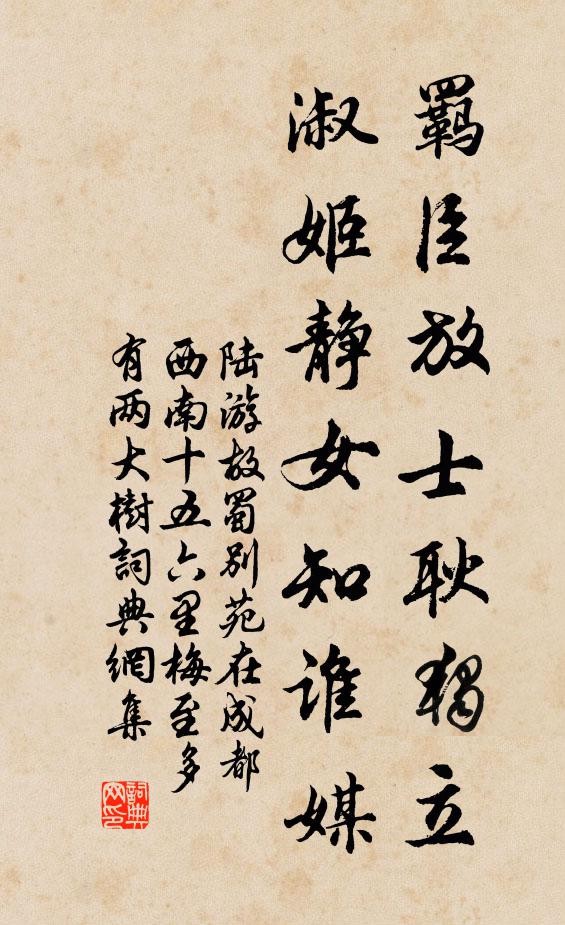 羁臣放士耿独立
淑姬静女知谁媒
陆游故蜀别苑在成都
西南十五六里梅至多
有两大樹詞典網集
詞典网印